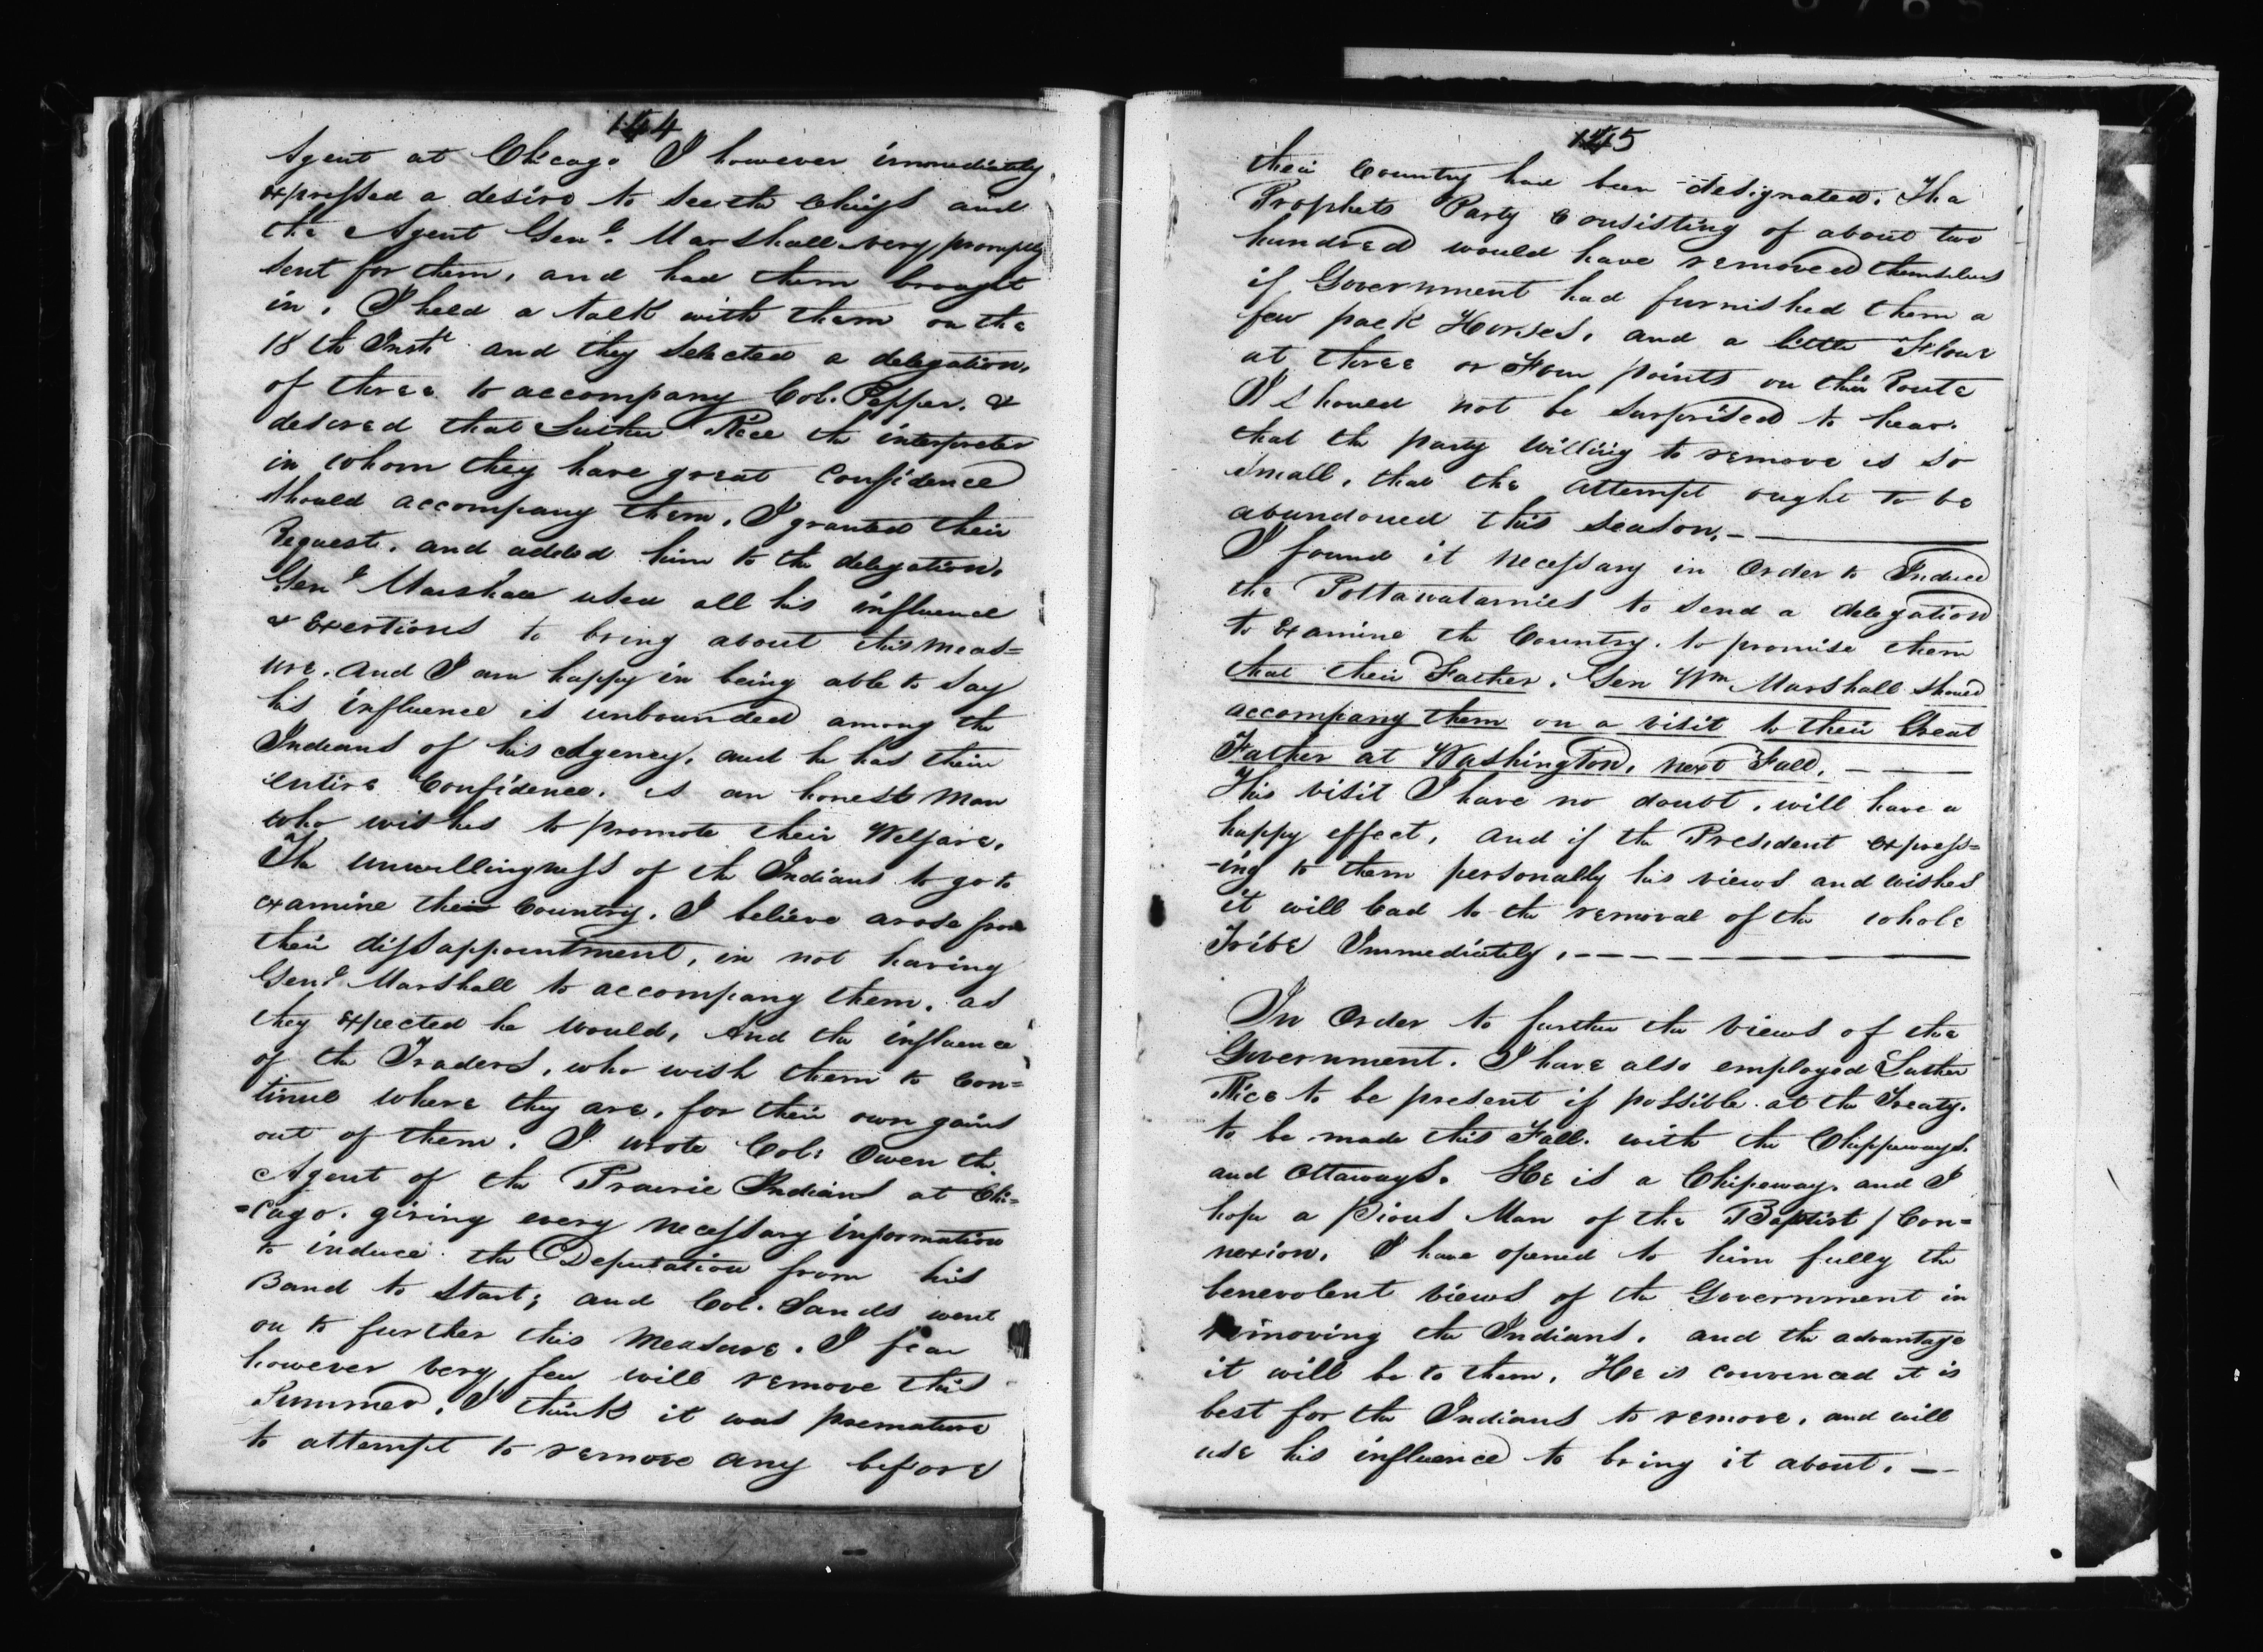 144
Agent at Chicago I however immediately
expressed a desire to see the chiefs and
the Agent Genl. Marshall very promptly
sent for them, and had them brought
in. I held a talk with them on the
18th Inst. and they selected a delegation,
of three to accompany Col. Pepper. &
desired that Luther Rice the interpreter
in whom they have great Confidence
should accompany them. I granted their
Request. and added him to the delegation.
Genl Marshall used all his influence
& Exertions to bring about this meas=
ure. and I am happy in being able to say
his influence is unbounded among the
Indians of his Agency, and he has their
entire Confidence. is an honest Man
who wishes to promote their Welfare.
The unwillingness of the Indians to go to
examine their Country. I believe arose from
their dissappointment, in not having
Genl Marshall to accompany them. as
they expected he would, And the influence
of the Traders, who wish them to Con=
tinue where they are, for their own gains
out of them. I wrote Col: Owen the
Agent of the Prairie Indians at Chi=
=cago. giving every necessary information
to induce the Deputation from his
Band to start; and Col. Sands went
on to further this Measure. I fear
however very few will remove this
Summer. I think it was premature
to attempt to remove any before
145
their Country had been designated. The
Prophets Party Consisting of about two
hundred would have removed themselves
if Government had furnished them a
few pack Horses, and a little Flour
at three or Four points on their Route
I should not be surprised to hear.
that the party willing to remove is so
small, that the attempt ought to be
abandoned this season. —
I found it necessary in Order to Induce
the Pottawatamies to send a delegation
to Examine the Country. to promise them
that their Father. Gen Wm Marshall should
accompany them on a visit to their Great
Father at Washington, next Fall. —
This visit I have no doubt, will have a
happy effect, and if the President express=
-ing to them personally his views and wishes
it will lead to the removal of the whole
Tribe Immediately. —
In Order to further the views of the
Government. I have also employed Luther
Rice to be present if possible at the Treaty.
to be made this Fall. with the Chippeways.
and Ottaways. He is a Chipeway. and I
hope a Pious Man of the Baptist Con=
nexion. I have opened to him fully the
benevolent views of the Government in
removing the Indians. and the advantage
it will be to them. He is convenced it is
best for the Indians to remove. and will
use his influence to bring it about. —